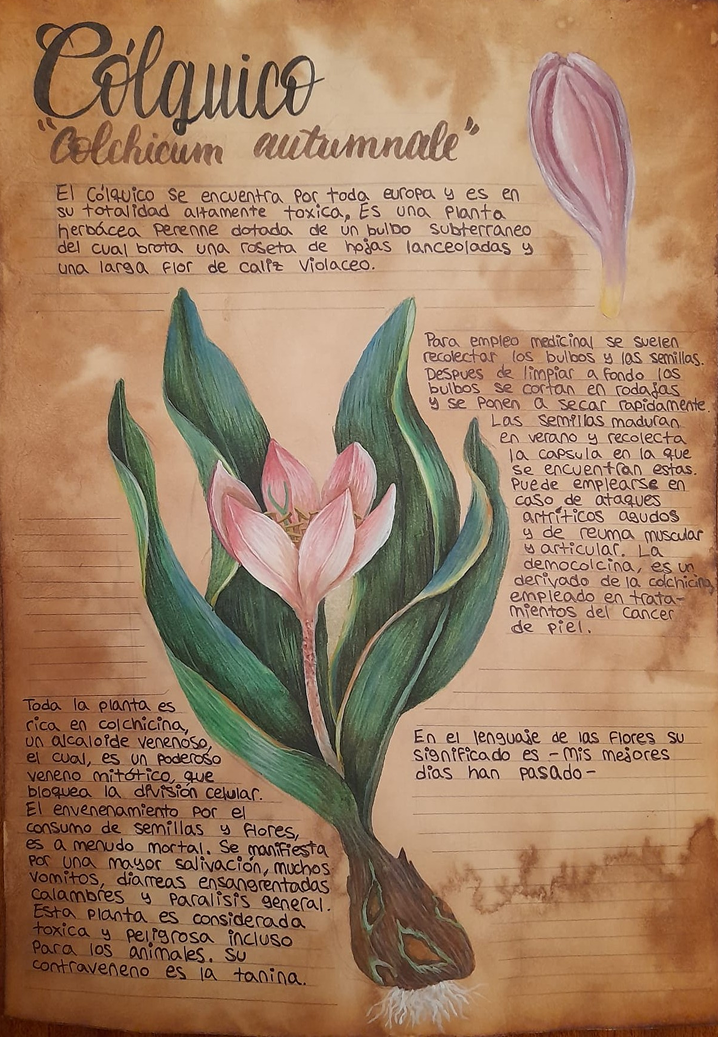 Cólquico
"Colchicum autumnale"
El Cólquico se encuentra por toda europa y es en
su totalidad altamente toxica, Es una planta
herbácea perenne dotada de un bulbo subterraneo
del cual brota una roseta de hojas lanceoladas y
una larga flor de caliz violaceo.
Para empleo medicinal se suelen
recolectar los bulbos y las semillas.
Despues de limpiar a fondo los
bulbos se cortan en rodajas
y se ponen a secar rapidamente.
Las semillas maduran
en verano y recolecta
la capsula en la que
se encuentran estas.
Puede emplearse en
caso de ataques
artríticos agudos
y de reuma muscular
y articular. La
democolcina, es un
derivado de la colchicina,
empleado en trata-
mientos del cancer
de piel.
Toda la planta es
rica en colchicina,
un alcaloide venenoso,
el cual, es un poderoso
veneno mitótico, que
bloquea la división celular.
El envenenamiento por el
consumo de semillas y flores,
es a menudo mortal. Se manifiesta
por una mayor salivación, muchos
vomitos, diarreas ensangrentadas
calambres y paralisis general.
Esta planta es considerada
toxica y peligrosa incluso
para los animales. Su
contraveneno es la tanina.
En el lenguaje de las flores su
significado es -Mis mejores
dias han pasado-